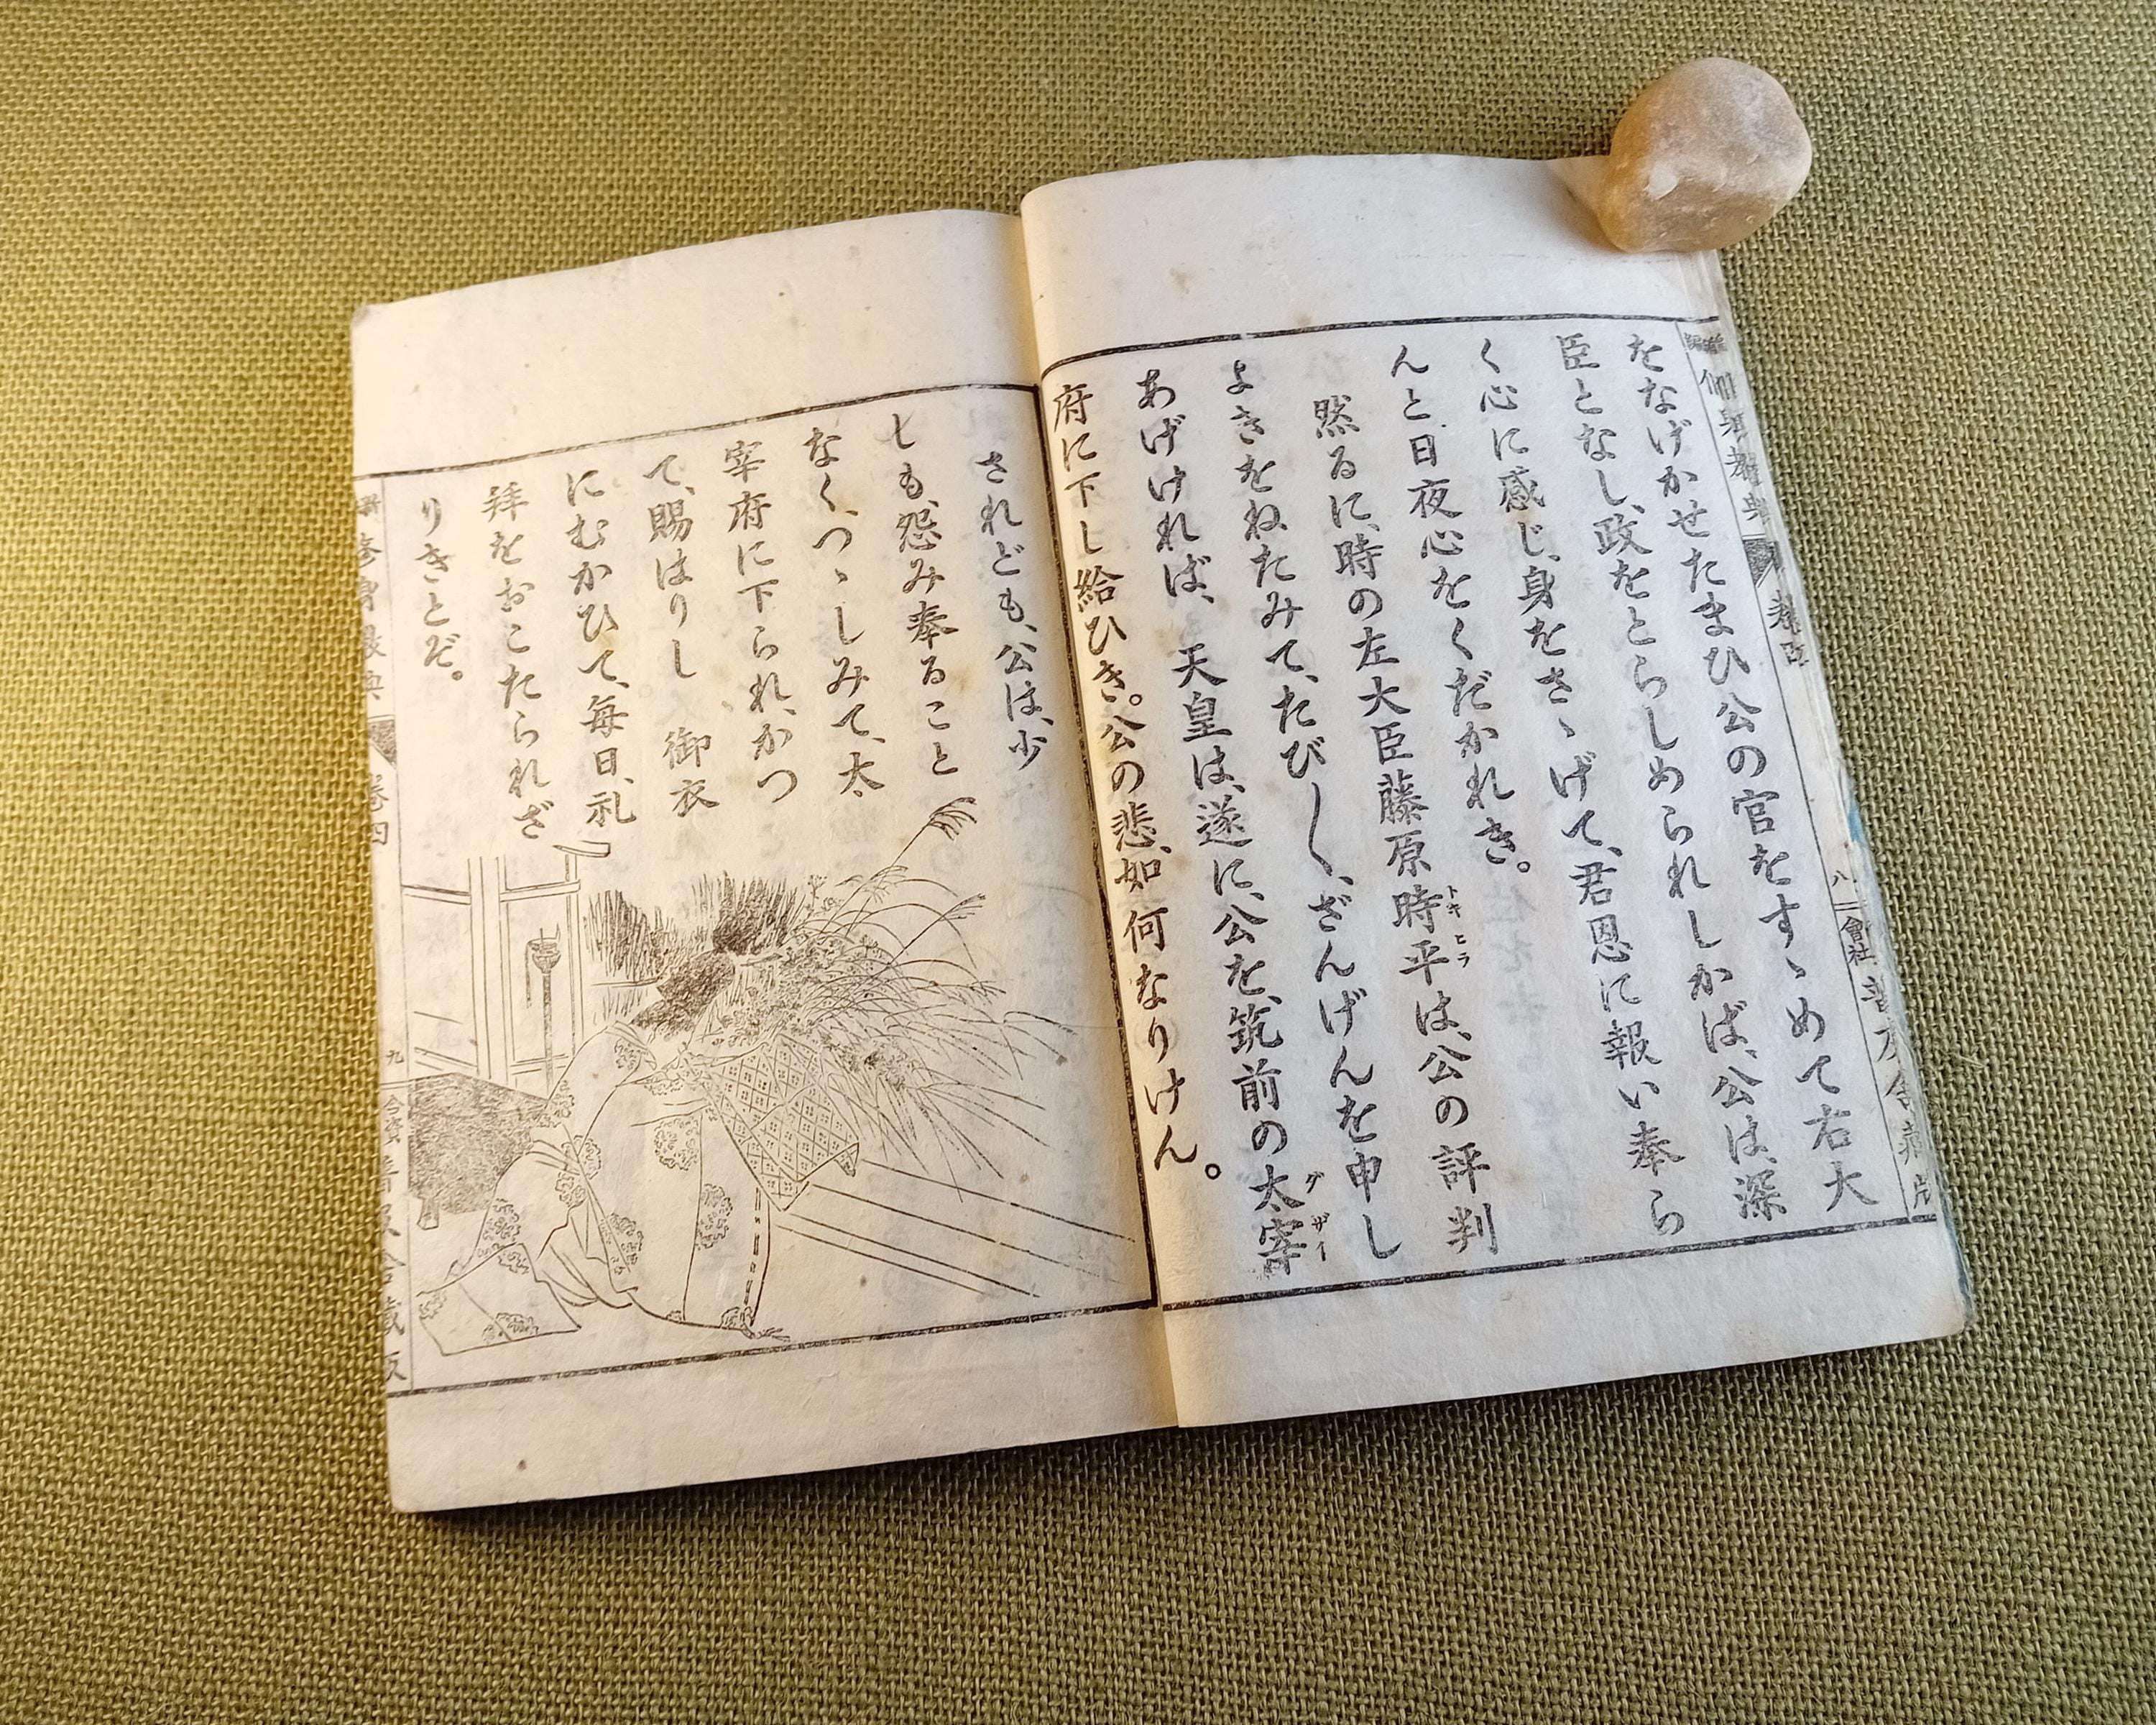 をなげかせたまひ公の官をすゝめて右大
臣となし、政をとらしめられしかば、公は、深
く心に感じ、身をさゝげて、君恩に報い奉ら
んと日夜心をくだかれき。
然るに、時の左大臣藤原時平は、公の評判
トキヒラ
よきをねたみて、たび〱、ざんげんを申し
あげければ、天皇は、遂に、公を、筑前の太宰
ダザイ
府に下し給ひき。公の悲、如何なりけん。
されども、公は、少
しも、怨み奉ること
なく、つゝしみて、太
宰府に下られ、かつ
て、賜はりし 御衣
にむかひて、毎日、礼
拝をおこたられざ
りきとぞ。
修身
巻四
九
普及舎蔵版
八
會社